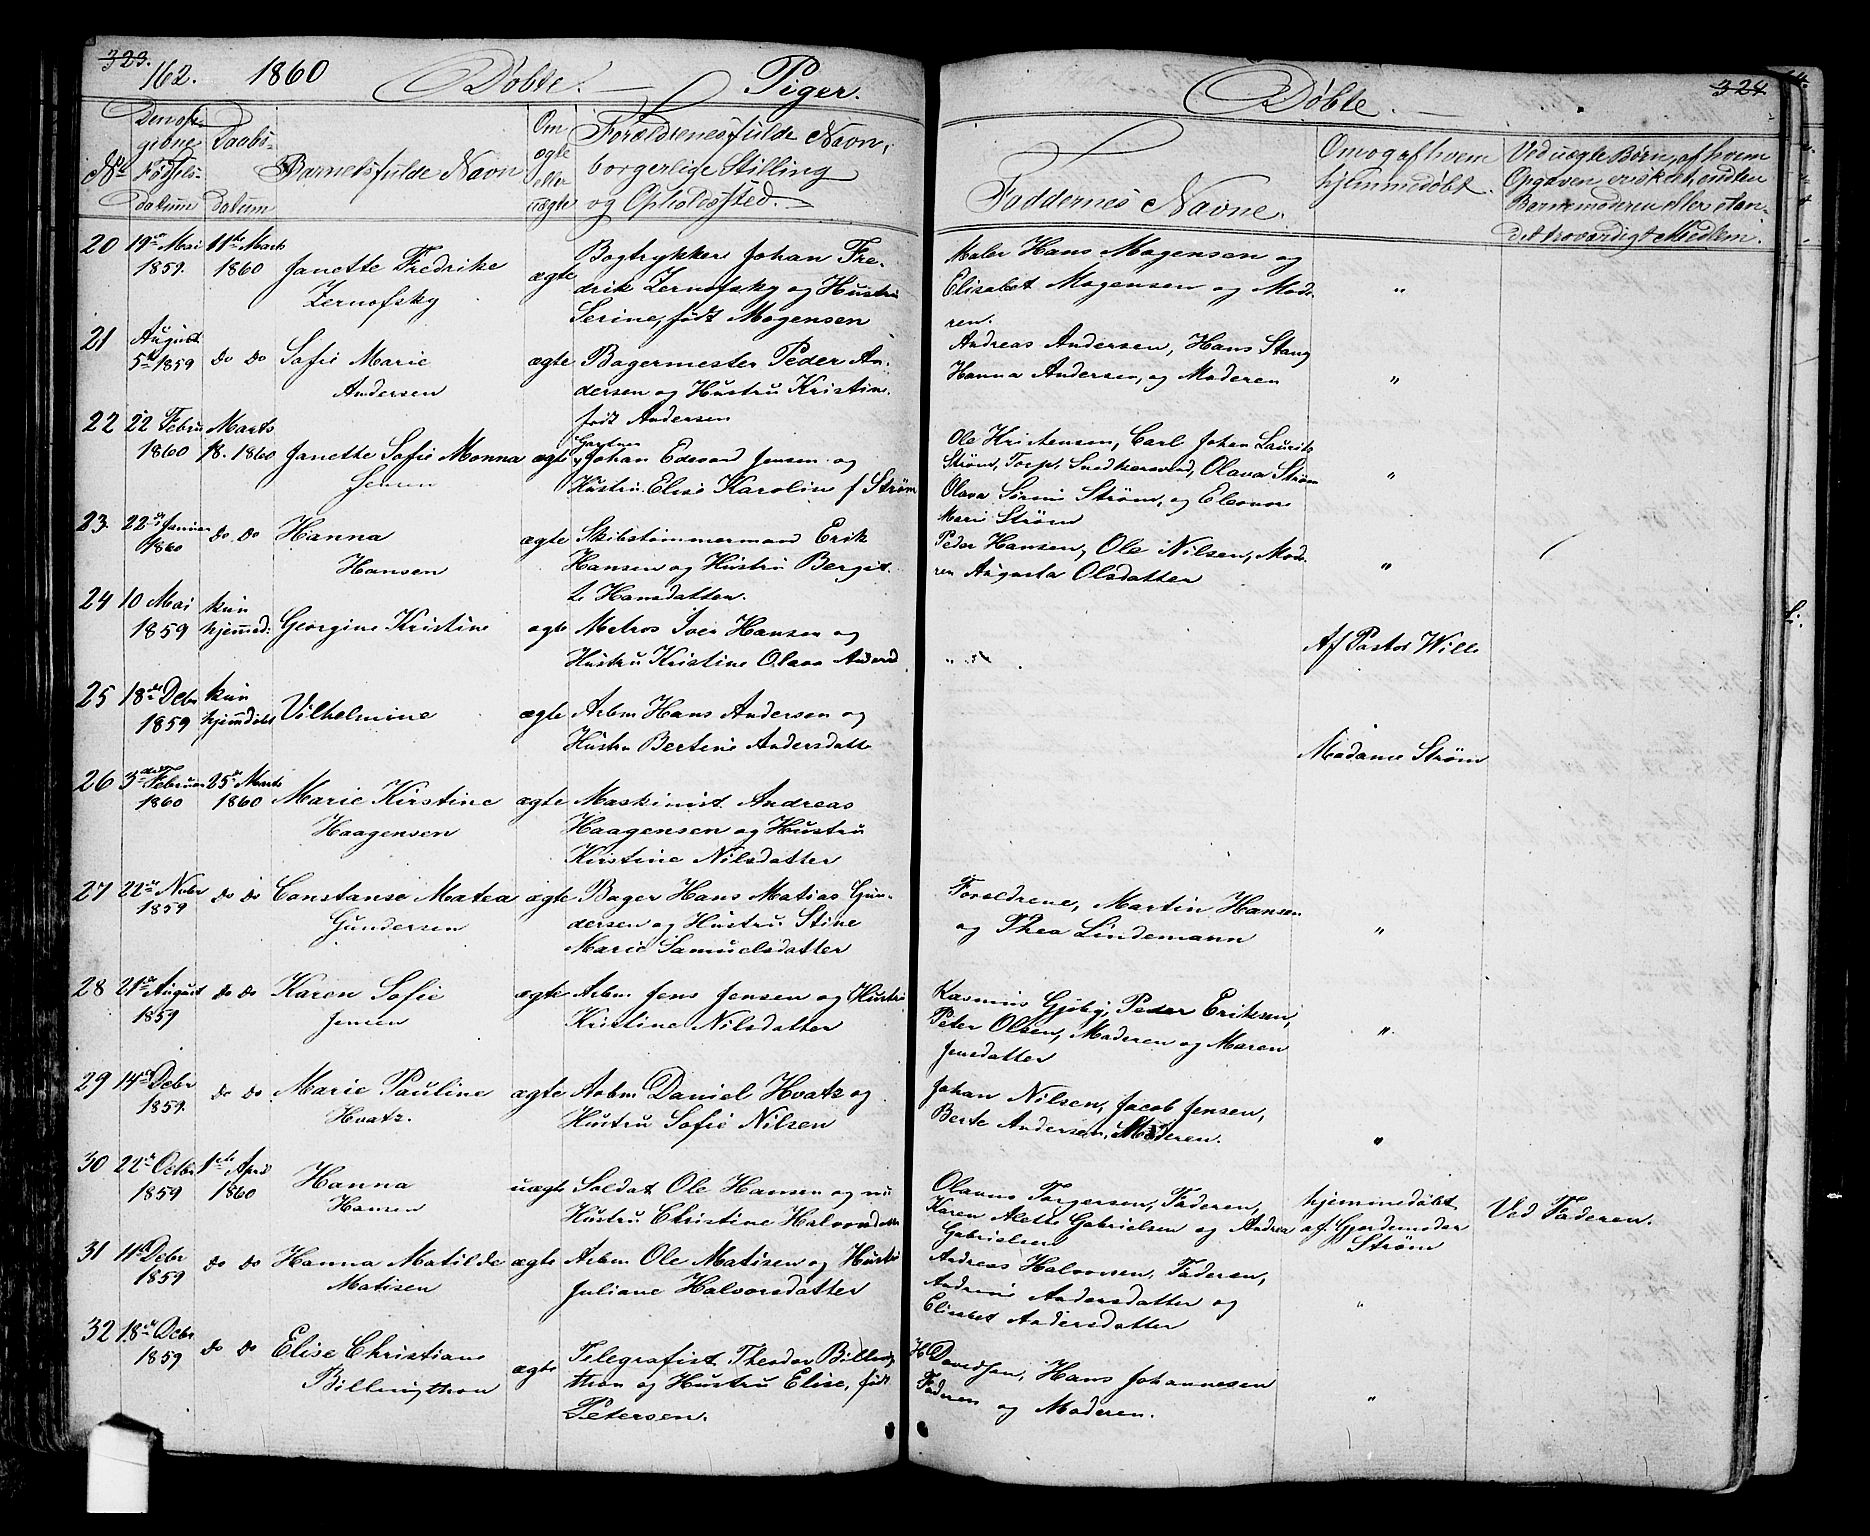 323.
162. 1860 Døbte. Piger.
Den opgibne Fødselsdatum
Daabsdatum
No
Barnets fulde Navn
Om ægte eller uægte
Forældrenes fulde Navn,
borgerlige Stilling
og Opholdssted.
20 19de Mai 1859. 11te Marts 1860 Janette Fredrike Zernofsky ægte Bogtrykker Johan Fre-
drik Zernofsky og Hustru
Serine, født Mogensen
21 August 5te 1859 do do Sofie Marie Andersen ægte Bagermester Peder An-
dersen og Hustru Kristine
født Andersen
22 22 Febru 1860 Marts 18. 1860 Janette Sofie Monna Jensen ægte Gartner Johan Edevard Jensen og
Hustru Elise Karoline f Strøm
23. 22de Januar 1860 do do Hanna Hansen ægte Skibstimmermand Erik
Hansen og Hustru Bergit-
te Hansdatter.
24 10 Mai 1859 kun hjemmed: Georgine Kristine ægte Matros Iver Hansen og
Hustru Kristine Olava Andersd
25 18de Debr 1859 kun hjemdøbt Vilhelmine ægte Arbm Hans Andersen og
Hustru Bertine Andersdatt
26 3die Februar 1860 25de Marts 1860 Marie Kirstine Haagensen ægte Maskinist Andreas
Haagensen og Hustru
Kirstine Nilsdatter
27 22de Novbr 1859 do do Constanse Matea Gundersen ægte Bager Hans Matias Gun-
dersen og Hustru Stine
Marie Samuelsdatter
28 21de August 1859 do do Karen Sofie Jensen ægte Arbm Jens Jensen og Hustru
Kristine Nilsdatter
29 14de Debr 1859. do do Marie Pauline Hvatz. ægte Arbm Daniel Hvatz og
Hustru Sofie Nilsen
30 22de Octbr 1859 1ste April 1860 Hanna Hansen uægte Soldat Ole Hansen og nu
Hustru Christine Halvorsdatter
31 11te Debr 1859 do do Hanna Matilde Matisen ægte Arbm Ole Matisen og Hustru
Juliane Halvorsdatter
32 18de Debr 1859 do do Elise Christiane Billingthon ægte Telegrafist Theodor Billing-
thon og Hustru Elise, født
Petersen.
324
Døbte.
Faddernes Navne.
Om og af hvem
hjemmedøbt.
Ved uægte Børn, af hvem
Opgaven er skeet, enten
Barnemoderen eller et an-
det troværdigt Medlem.
Maler Hans Mogensen og
Elisabet Mogensen og Mode-
ren. "
Andreas Andersen, Hans Stang
Hanna Andersen, og Moderen "
Ole Kristensen, Carl Johan Laurits
Strøm, Torp, Snedkersvend, Olava Strøm "
Olava Sørine Strøm, og Eleonore
Marie Strøm
Peder Hansen, Ole Nilsen, Mode-
ren Augusta Olsdatter "
Af Pastor Wille
Madame Strøm
Forældrene, Martin Hansen
og Thea Lindemann "
Rasmus Gjøby, Peder Eriksen,
Peter Olsen, Moderen og Maren "
Jensdatter
Johan Nilsen, Jacob Jensen,
Berte Andersen, Moderen. "
Olaus Torgersen, Faderen,
Karen Alette Gabrielsen og Andrea
Gabrielsen
hjemmedøbt
af Gjordemoder
Strøm
Ved Faderen.
Andreas Halvorsen, Faderen,
Andrine Andersdatter og "
Elisabet Andersdatter
H Davidsen, Hans Johannesen
Faderen og Moderen. "